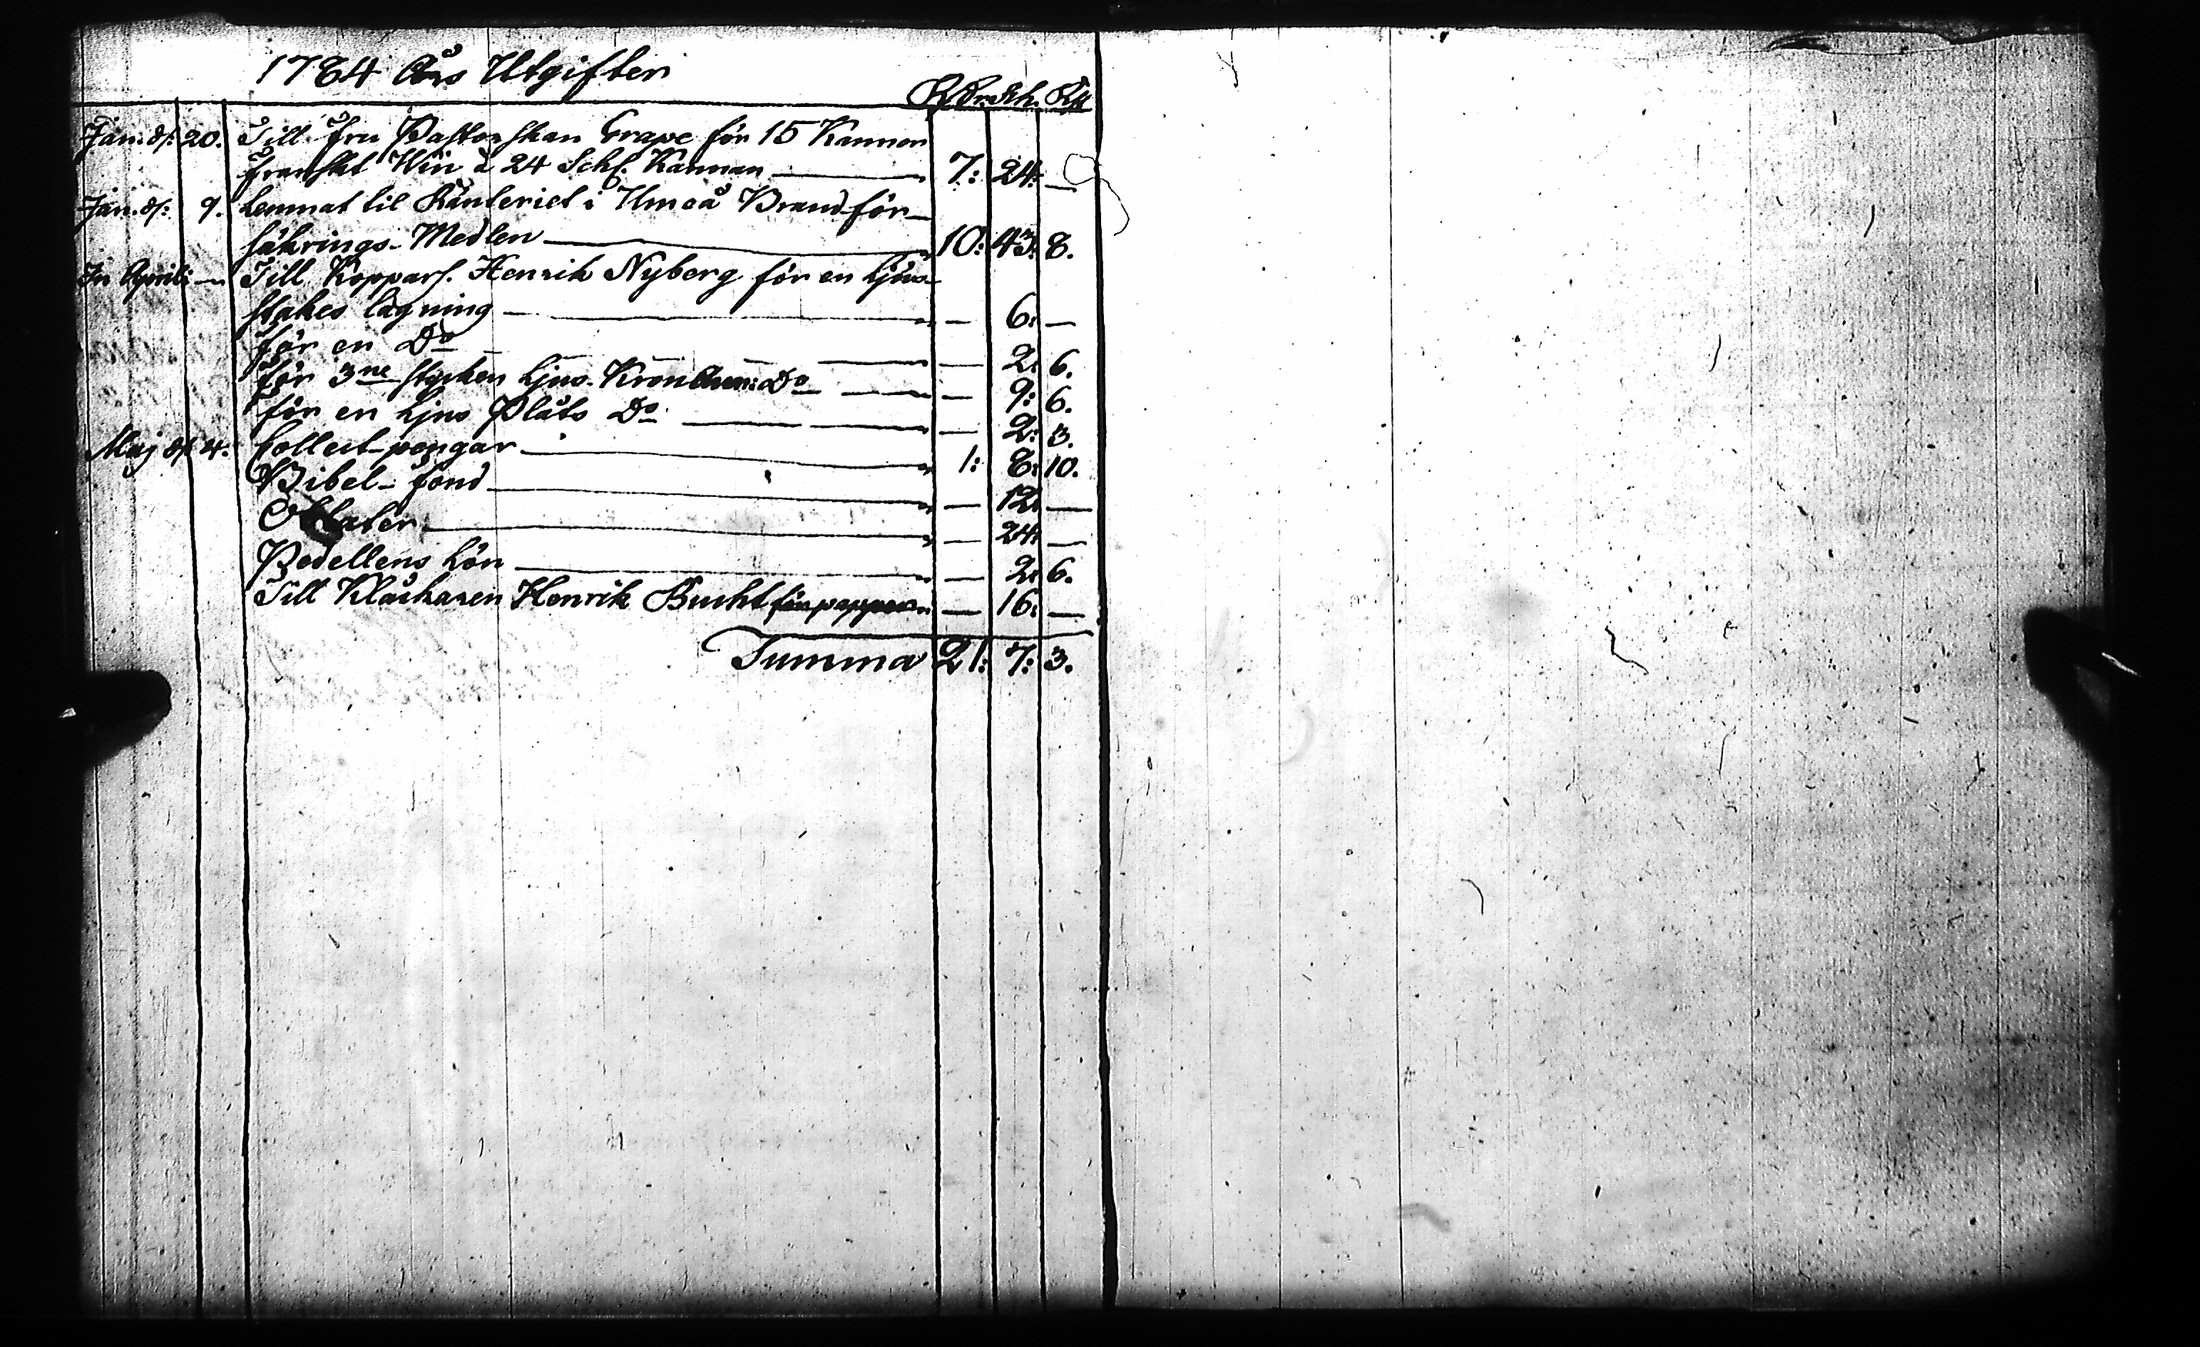 1784 Års Utgifter
R.Dr. Sch. Rst
Jan. d: 20. Till Fru Pastorskan Grape för 15 Kannor
Franskt Win à 24 Sch. Kannan 7: 24: —
Jan. d: 9. Lemnat til Ränteriet i Umeå Brandför-
säkrings-Medlen 10: 43: 8.
In Aprili — Till Kopparsl. Henrik Nyberg för en Ljus-
stakes lagning — 6: —
för en Do — 2: 6.
för 3ne stycken Ljus-Kronchen: Do — 9: 6.
för en Ljus Plåts Do — 2: 3.
Maj d: 4. Collect-pengar 1: 8: 10.
Bibel-fond — 12: —
Oblater — 24: —
Pedellens Lön — 2: 6.
Till Klåckaren Henrik Bucht för papper — 16: —
Summa 21: 7: 3.